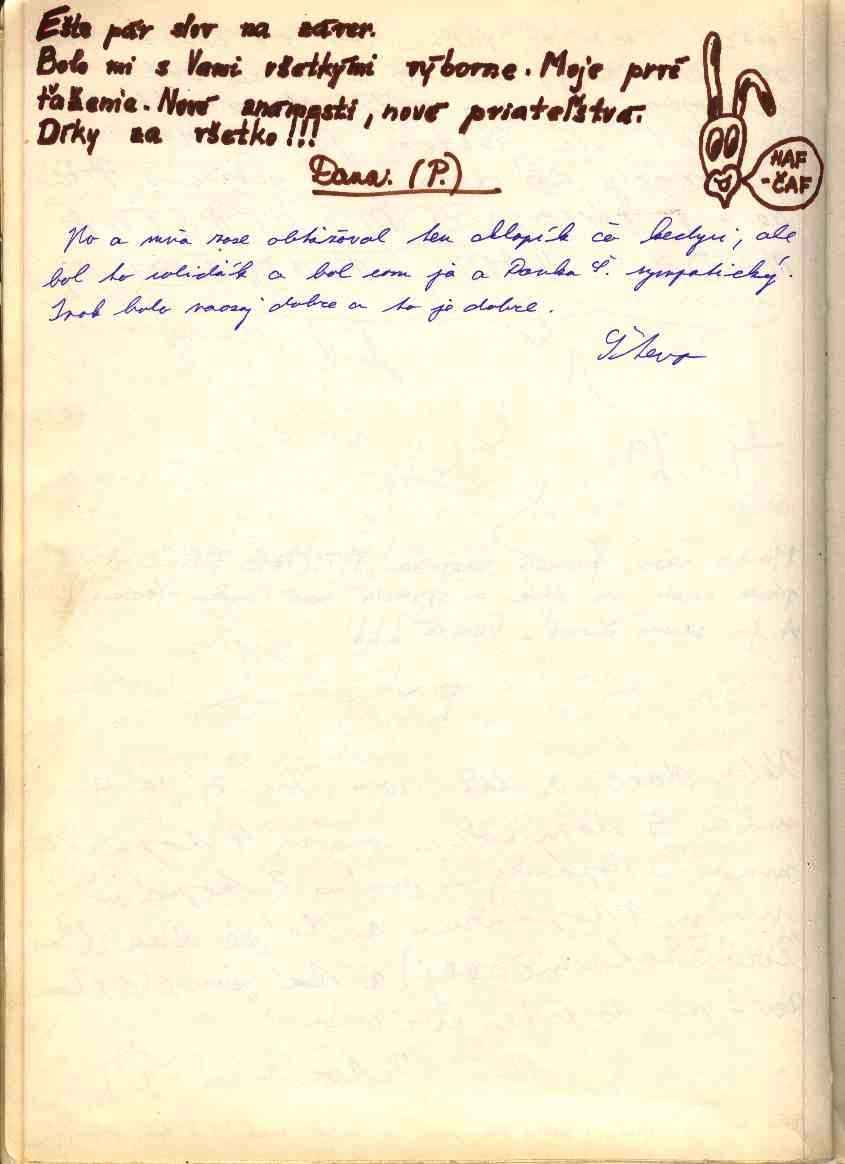 Ešte pár slov na záver.
Bolo mi s Vami všetkými výborne. Moje prvé
ťaženie. Nové známosti, nové priateľstvá.
Díky za všetko!!!
Dana. (P.)
HAF
-ČAF
No a mňa zase obťažoval ten chlapík čo ale
bol to solidák a bol som ja a Danka Š. sympatický.
Inak bolo naozaj dobre a to je dobre.
Števo